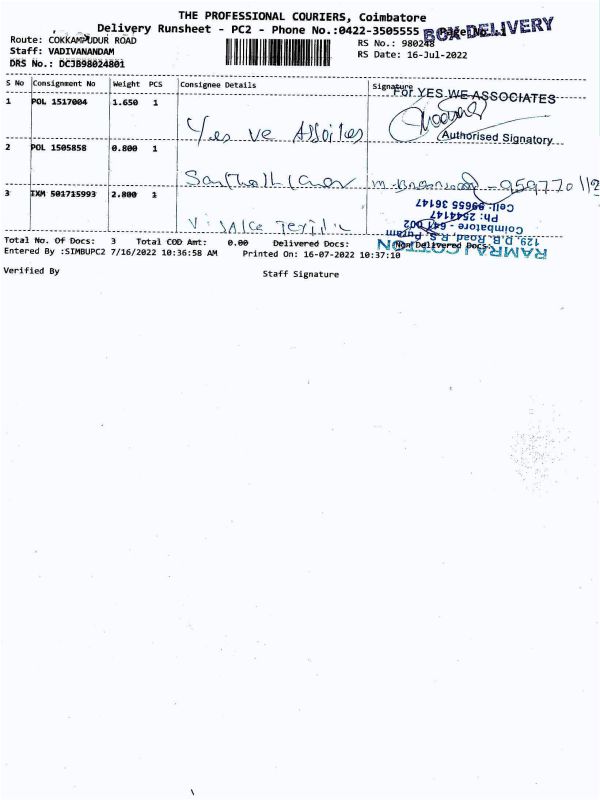 THE PROFESSIONAL COURIERS, Coimbatore
Delivery Runsheet - PC2 - Phone No.:0422-3505555 Page No.:1
BOX DELIVERY
Route: COKKAMPUDUR ROAD
RS No.: 980248
Staff: VADIVANANDAM
RS Date: 16-Jul-2022
DRS No.: DCJB98024801
S No Consignment No Weight PCS Consignee Details Signature
For YES WE ASSOCIATES
1 POL 1517004 1.650 1
Yes ve
Authorised Signatory
2 POL 1505858 0.800 1
3 IXM 501715993 2.800 1
Cell: 99655 36147
Ph: 2544147
Coimbatore - 641 002
129, D.B. Road, R.S. Puram
RAMRAJ COTTON
Total No. Of Docs: 3 Total COD Amt: 0.00 Delivered Docs: Non Delivered Docs:
Entered By :SIMBUPC2 7/16/2022 10:36:58 AM Printed On: 16-07-2022 10:37:10
Verified By Staff Signature